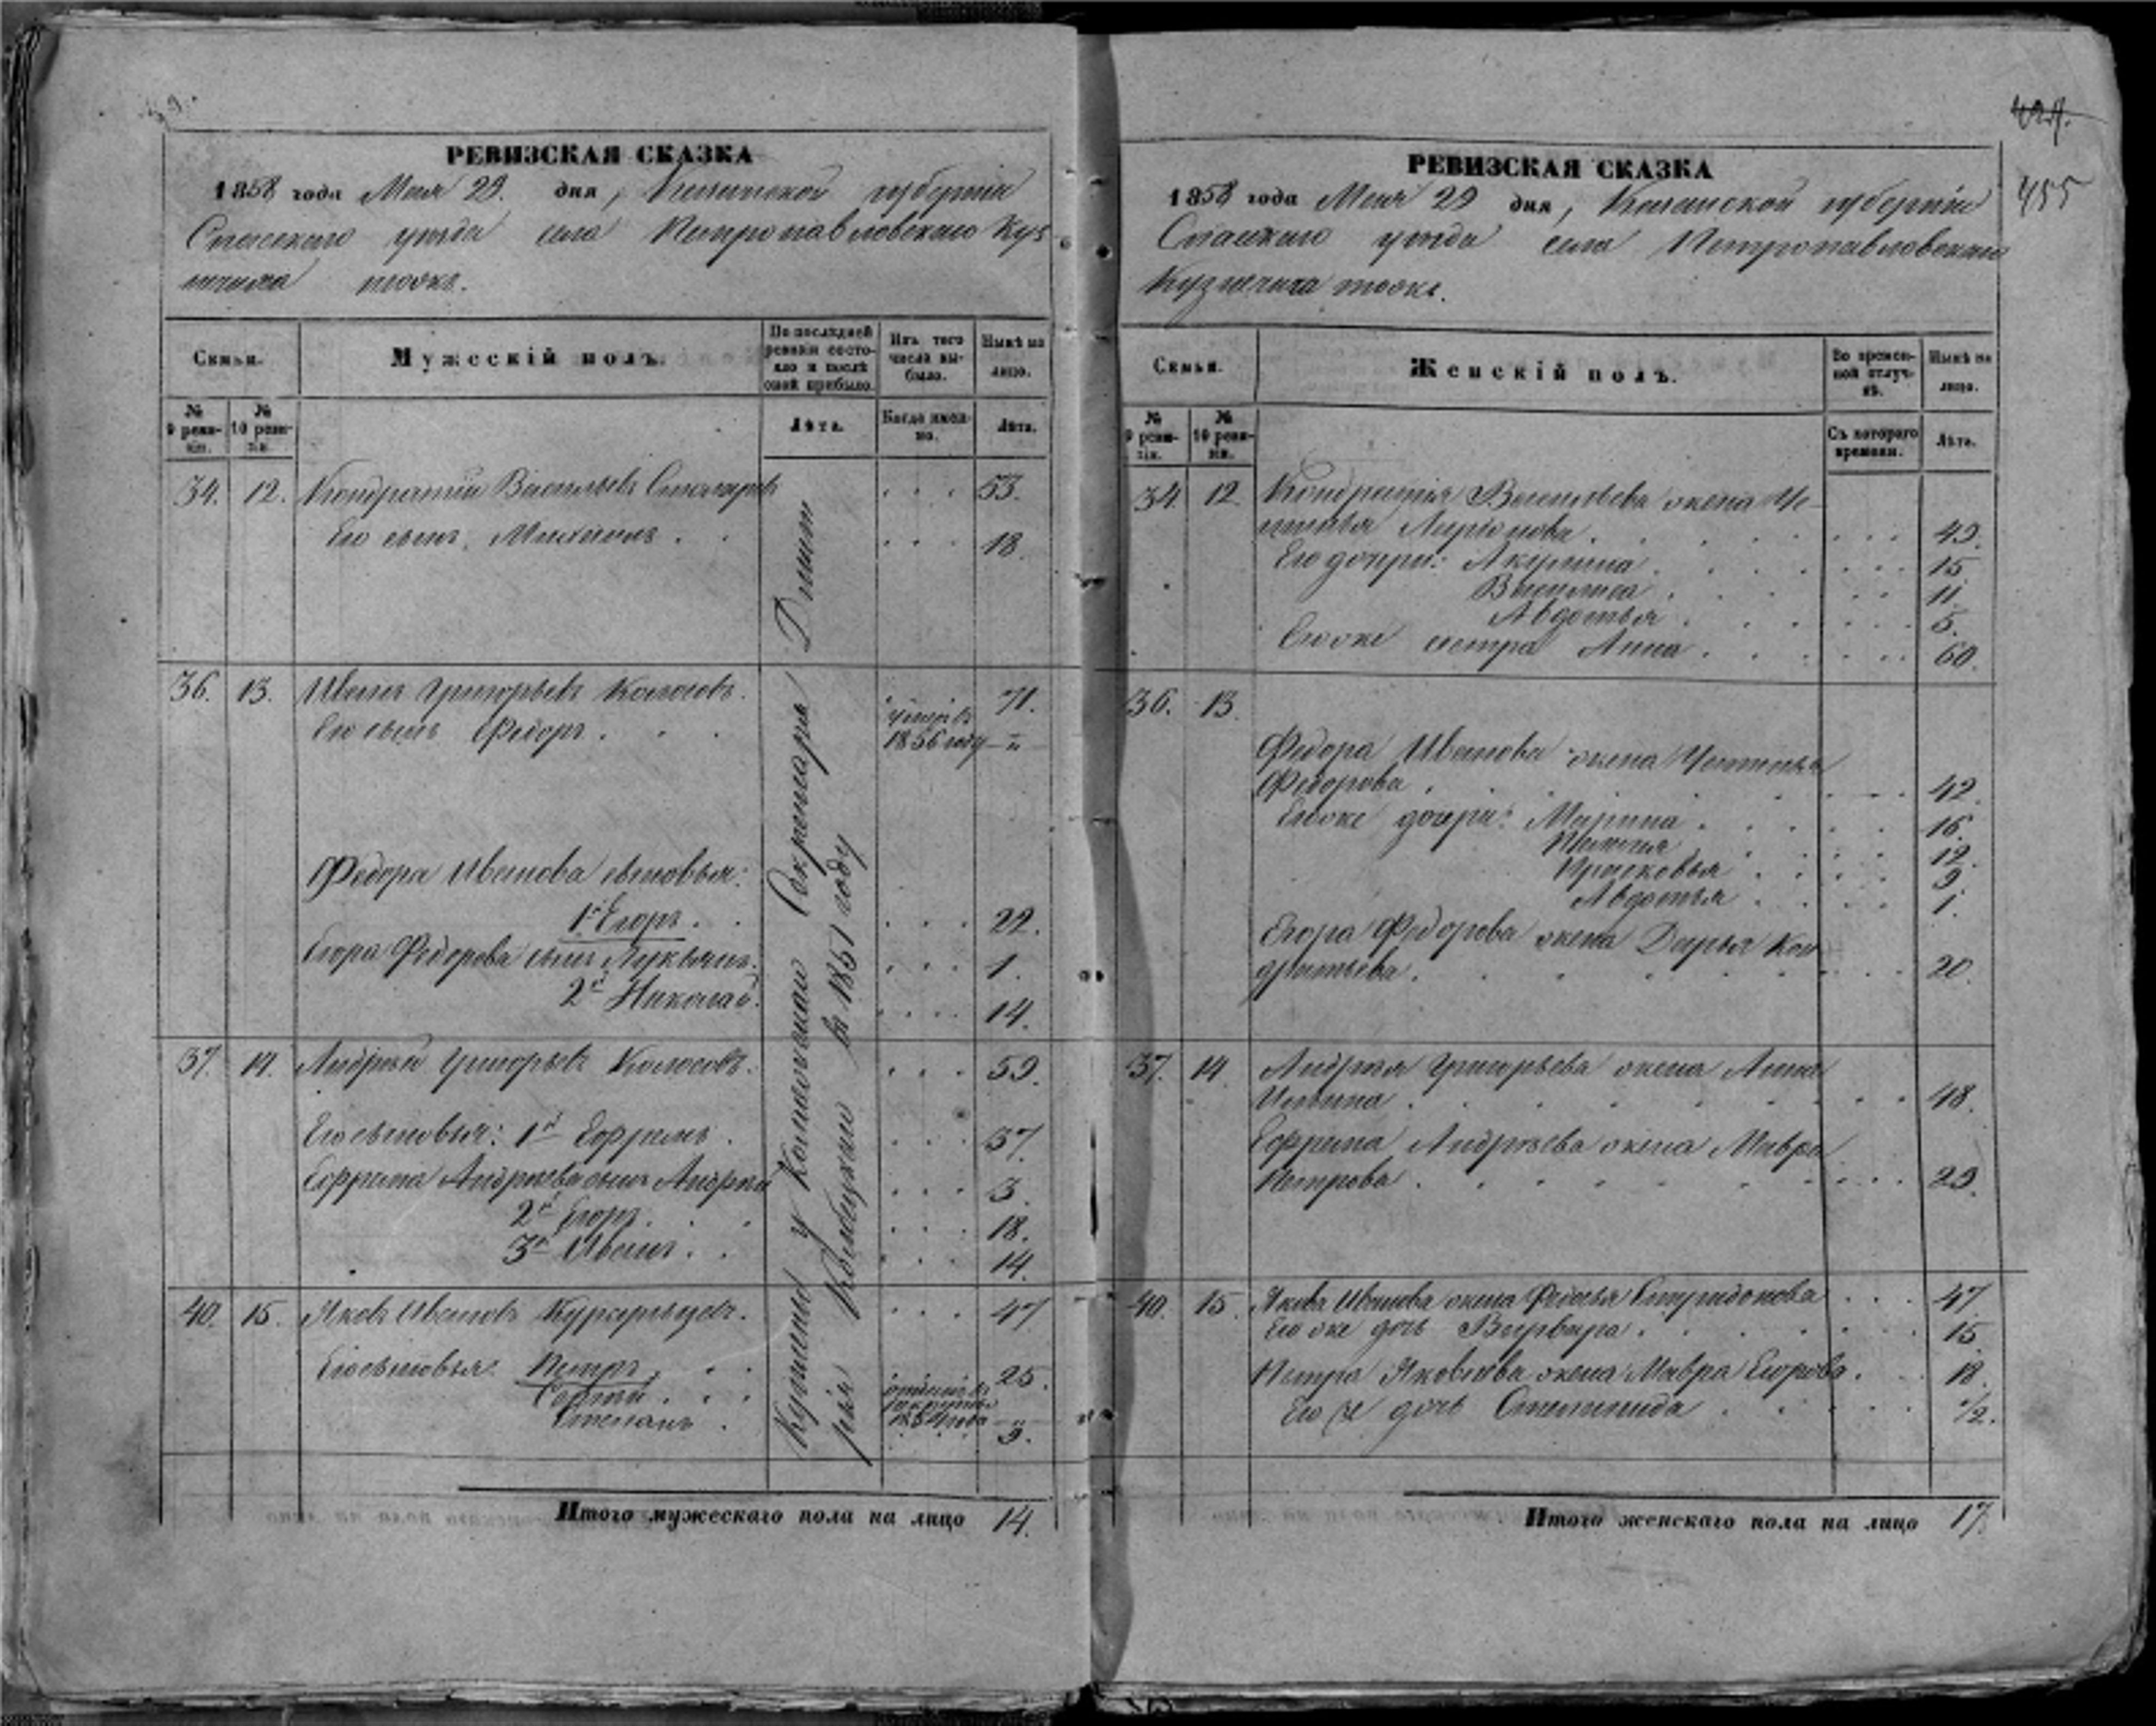 РЕВИЗСКАЯ СКАЗКА
1858 года Мая 29. дня, Казанской губернiи
Спасскаго уѣзда села Петропавловскаго Куз
нечиха тожъ.
Семьи.
Мужескiй полъ.
По послѣдней ревизiи состояло и послѣ оной прибыло.
Изъ того числа выбыло.
Нынѣ на лицо.
№ 9 ревизiи.
№ 10 ревизiи.
Лѣта.
Когда именно.
Лѣта.
34. 12. Кондратiй Васильевъ Столяровъ 53.
Его сынъ, Михаилъ 18.
36. 13. Иванъ Григорьевъ Колосовъ. 71.
Его сынъ Федоръ умеръ въ 1856 году — „ —
Федора Иванова сыновья:
1й Егоръ. 22.
Егора Федорова сынъ Лукьянъ. 1.
2й Николай. 14.
37. 14. Андрей Григорьевъ Колосовъ. 59.
Его сыновья: 1й Ефримъ. 37.
Ефрима Андреева сынъ Андрей 3.
2й Егоръ. 18.
3й Иванъ. 14.
40. 15. Яковъ Ивановъ 47.
Его сыновья: Петръ, 25.
Сергѣй. 1854 года — „ —
Степанъ. 9.
Куплены у Коллежскаго Секретаря
въ 1851 году
Итого мужескаго пола на лицо 14.
424.
455
РЕВИЗСКАЯ СКАЗКА
1858 года Мая 29 дня, Казанской губернiи
Спасскаго уѣзда села Петропавловскаго
Кузнечиха тожъ.
Семьи.
Женскiй полъ.
Во временной отлучкѣ.
Нынѣ на лицо.
№ 9 ревизiи.
№ 10 ревизiи.
Съ котораго времени.
Лѣта.
34. 12. Кондратiя Васильева жена На
талья Ларiонова. 49.
Его дочери: Акулина. 15
Василиса. 11.
Авдотья. 5.
Егоже сестра Анна. 60.
36. 13.
Федора Иванова жена Наталья
Федорова. 42.
Егоже дочери: Марина. 16.
12.
Прасковья 9
Авдотья 1.
Егора Федорова жена Дарья Кон
дратьева. 20.
37. 14. Андрея Григорьева жена Анна
Ильина. 48.
Ефрима Андреева жена Мавра
Петрова. 29.
40. 15. Якова Иванова жена Федосья Спиридонова 47
Его же дочь Варвара. 15
Петра Яковлева жена Мавра Егорова. 18.
Его же дочь Степанида 1/2.
Итого женскаго пола на лицо 17.